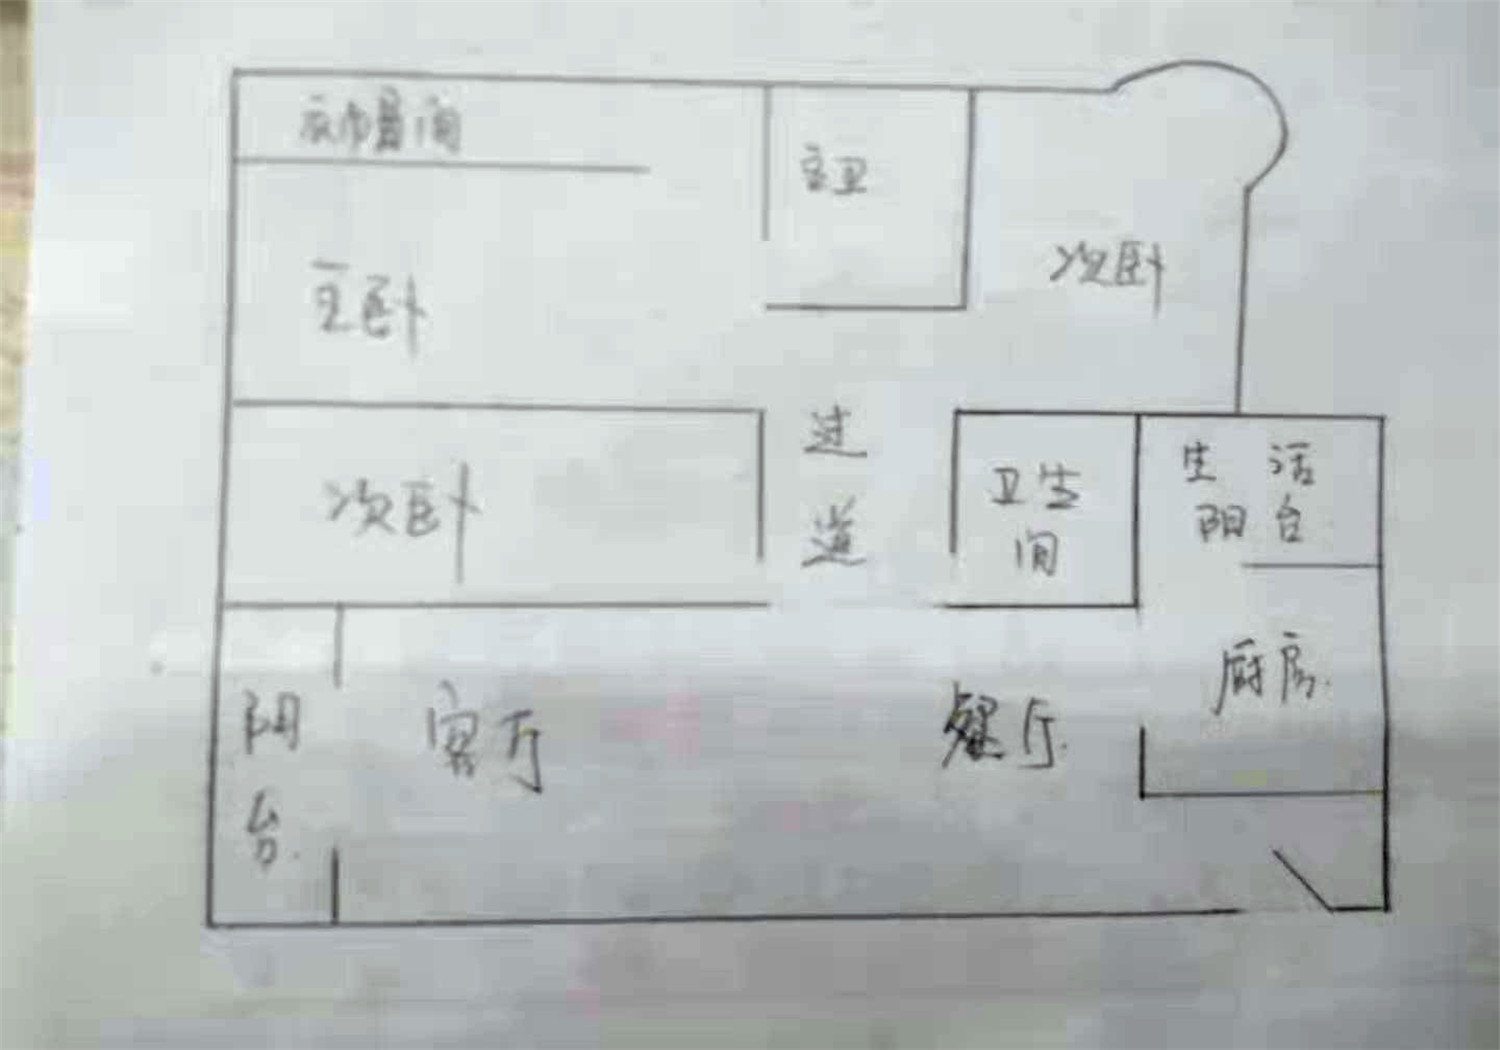 衣帽间
主卫
次卧
主卧
过道
次卧
卫生间
生活阳台
厨房
阳台
客厅
餐厅